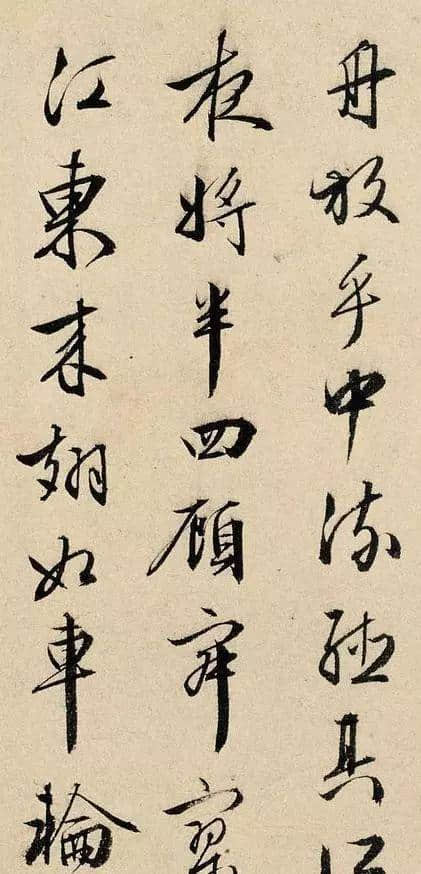 舟放乎中流聽其所
夜將半四顧寂寥
江東來翅如車輪